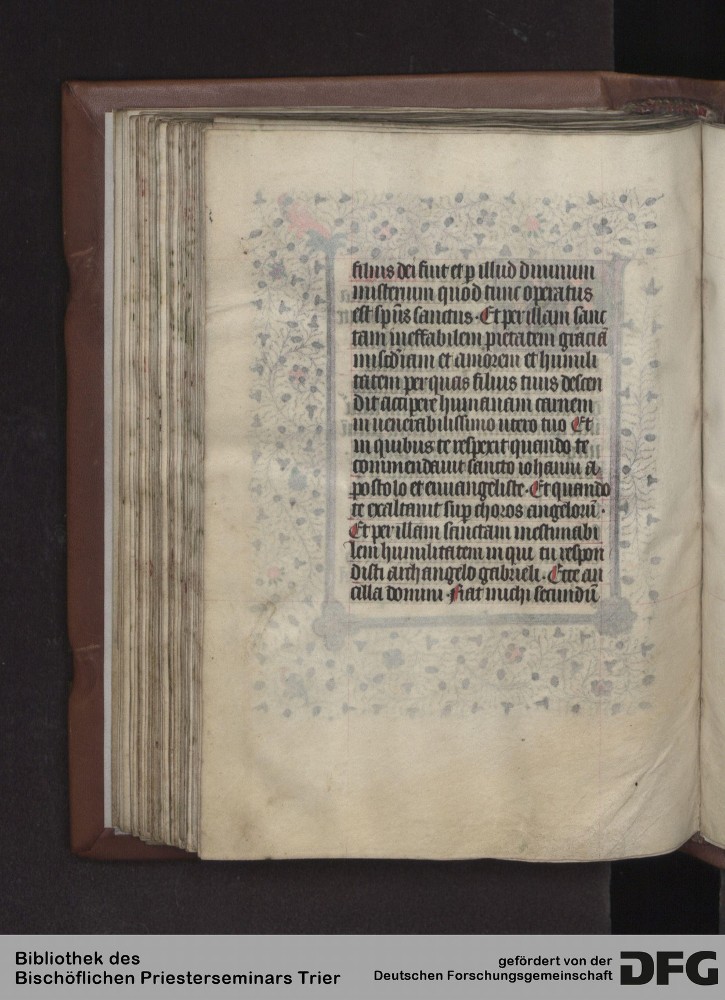 filius dei fiut et p illud diuinum
misterium quod tunc operatus
est sp̄us sanctus. Et per illam sanc
tam ineffabilem pietatem graciā
misc̄diam et amorem et humili
tatem per quas filius tuus descen
dit accipere humanam carnem
in uenerabilissimo utero tuo Et
in quibus te respexit quando te
commendauit sancto iohanni a
postolo et euuangeliste. Et quando
te exaltauit sup choros angelorū.
Et per illam sanctam inestimabi
lem humilitatem in qua tu respon
disti archangelo gabrieli. Ecce an
cilla domini. Fiat michi secundū
Bibliothek des
Bischöflichen Priesterseminars Trier
gefördert von der
Deutschen Forschungsgemeinschaft
DFG